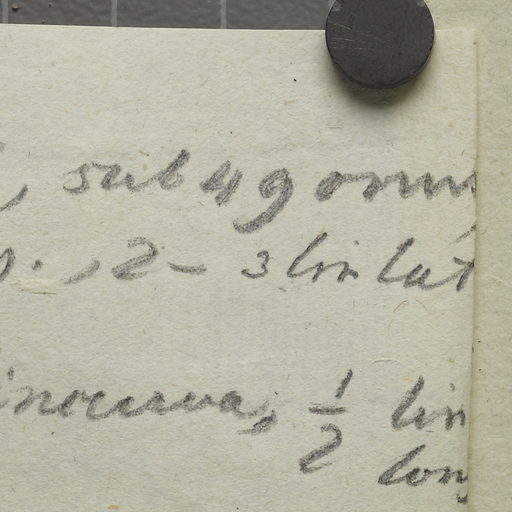 , sub 4gonu
., 2-3 lin lat
incurva, 1/2 lin
long